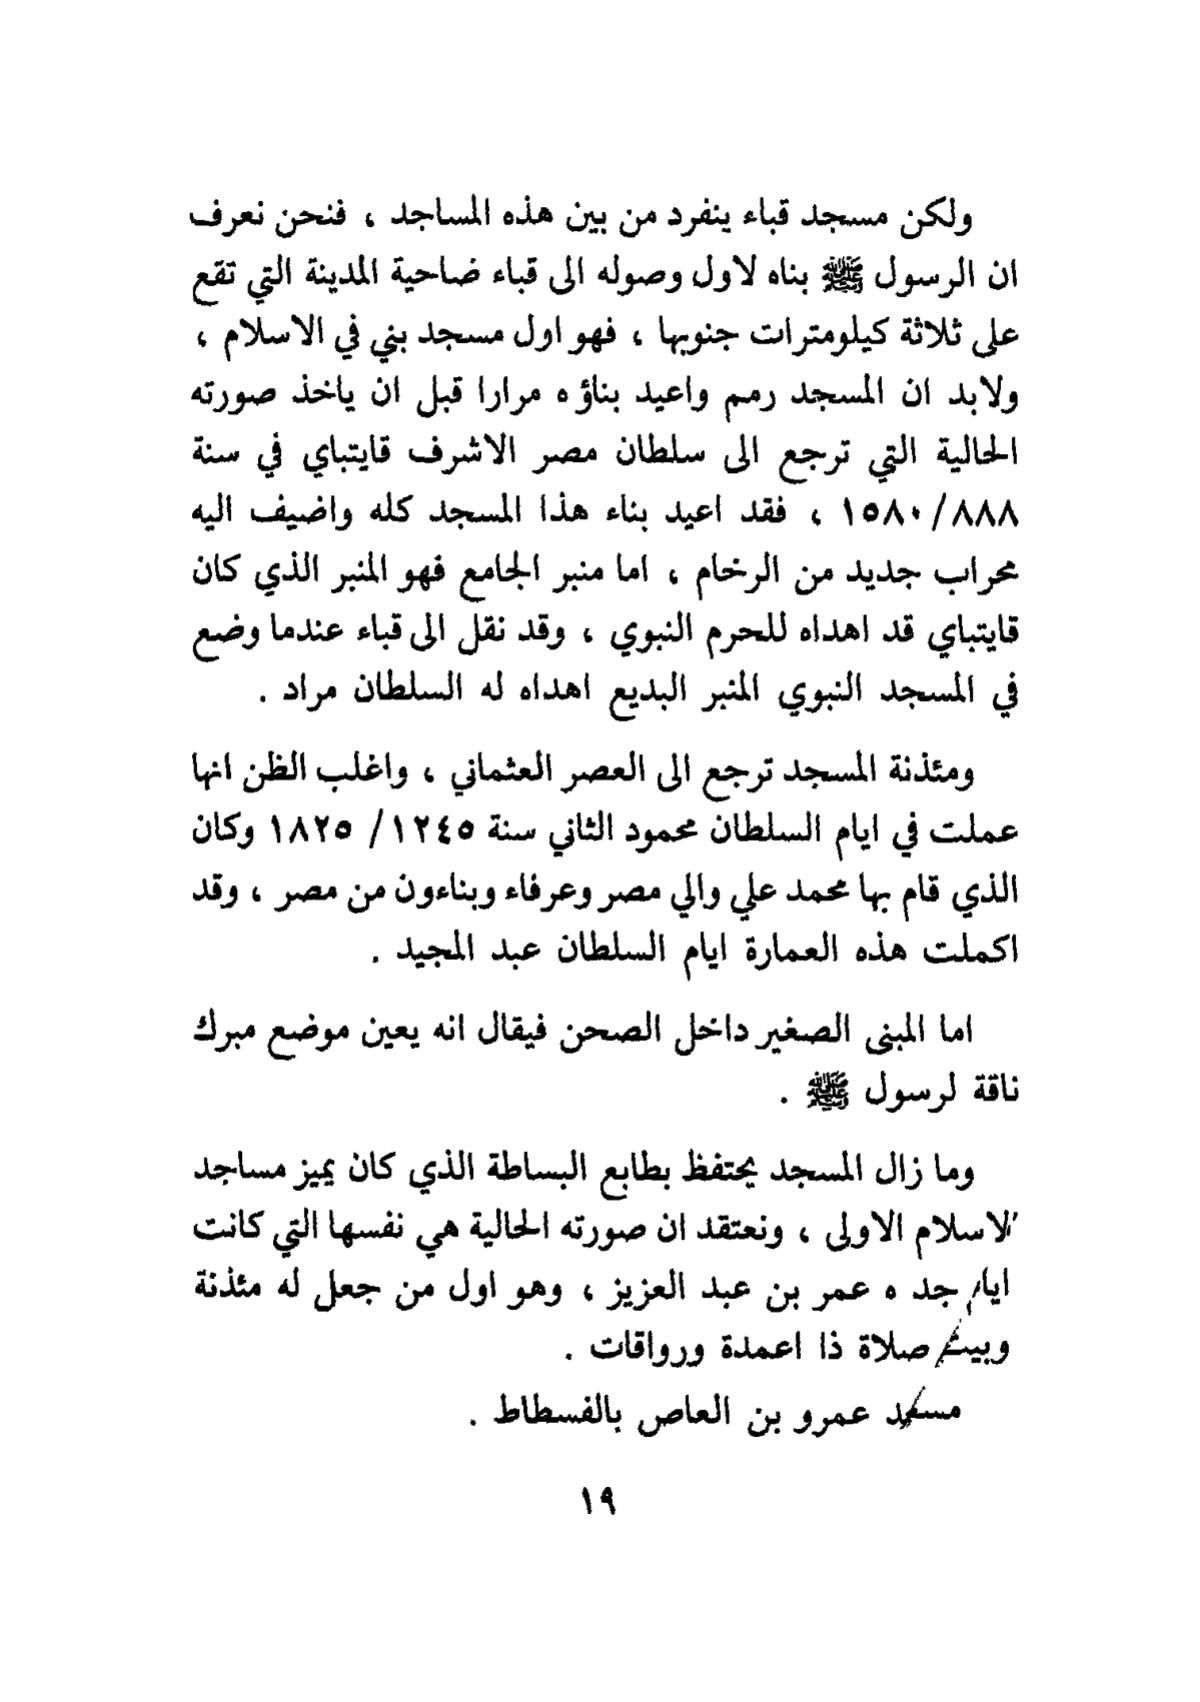 ولكن مسجد قباء ينفرد من بين هذه المساجد ، فنحن نعرف
ان الرسول ﷺ بناه لاول وصوله الى قباء ضاحية المدينة التي تقع
على ثلاثة كيلومترات جنوبها ، فهو اول مسجد بني في الاسلام ،
ولابد ان المسجد رمم واعيد بناؤه مرارا قبل ان ياخذ صورته
الحالية التي ترجع الى سلطان مصر الاشرف قايتباي في سنة
٨٨٨/١٥٨٠ ، فقد اعيد بناء هذا المسجد كله واضيف اليه
محراب جديد من الرخام ، اما منبر الجامع فهو المنبر الذي كان
قايتباي قد اهداه للحرم النبوي ، وقد نقل الى قباء عندما وضع
في المسجد النبوي المنبر البديع اهداه له السلطان مراد .
ومئذنة المسجد ترجع الى العصر العثماني ، واغلب الظن انها
عملت في ايام السلطان محمود الثاني سنة ١٢٤٥/ ١٨٢٥ وكان
الذي قام بها محمد علي والي مصر وعرفاء وبناءون من مصر ، وقد
اكملت هذه العمارة ايام السلطان عبد المجيد .
اما المبنى الصغير داخل الصحن فيقال انه يعين موضع مبرك
ناقة لرسول ﷺ .
وما زال المسجد يحتفظ بطابع البساطة الذي كان يميز مساجد
لاسلام الاولى ، ونعتقد ان صورته الحالية هي نفسها التي كانت
ايام جد ه عمر بن عبد العزيز ، وهو اول من جعل له مئذنة
وبيت صلاة ذا اعمدة ورواقات .
مسجد عمرو بن العاص بالفسطاط .
١٩